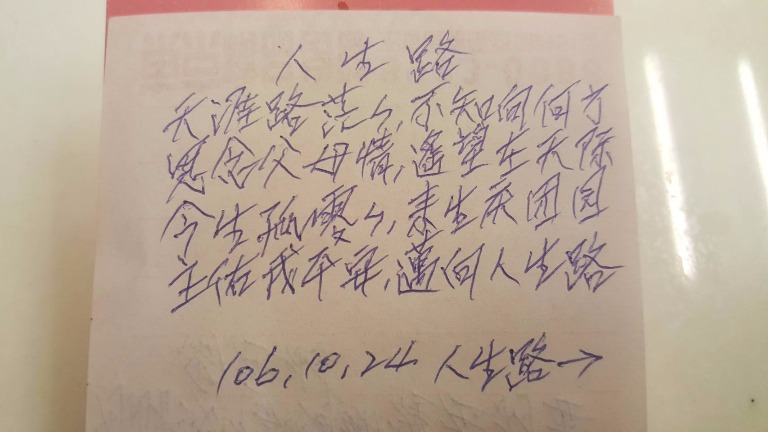 人生路
天涯路茫々,不知向何方
思念父母情,遙望在天際
今生孤零々,來生慶團圓
主佑我平安,邁向人生路
106,10,24 人生路→